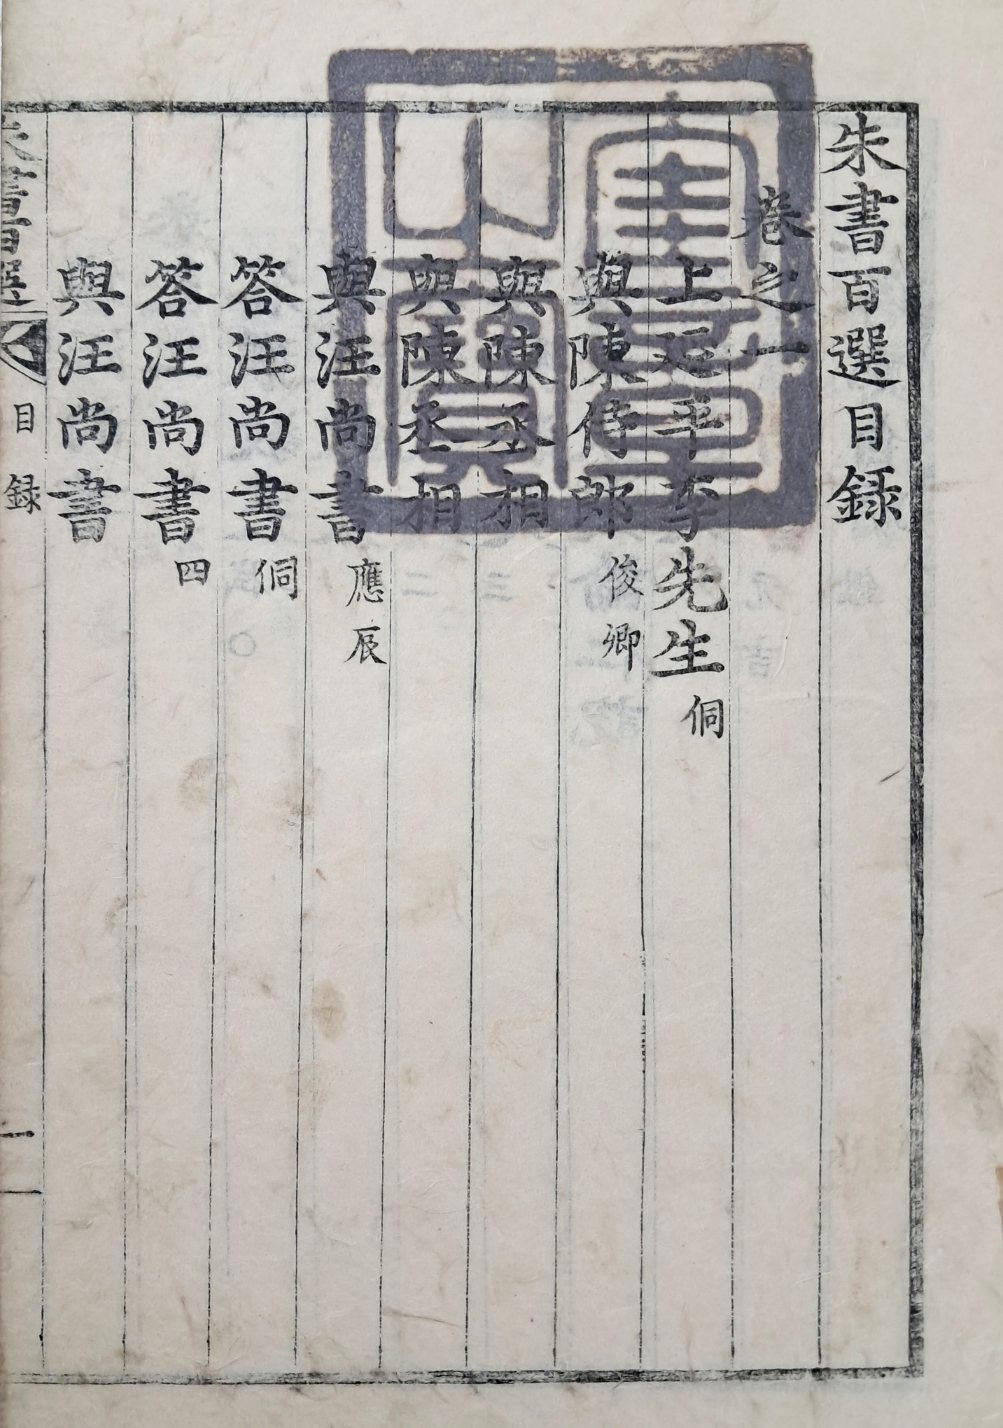 朱書百選目録
卷之一
上延平李先生侗
與陳侍郎俊卿
與陳丞相
與陳丞相
與汪尚書應辰
答汪尚書侗
答汪尚書四
與汪尚書
朱書百選 目録 一